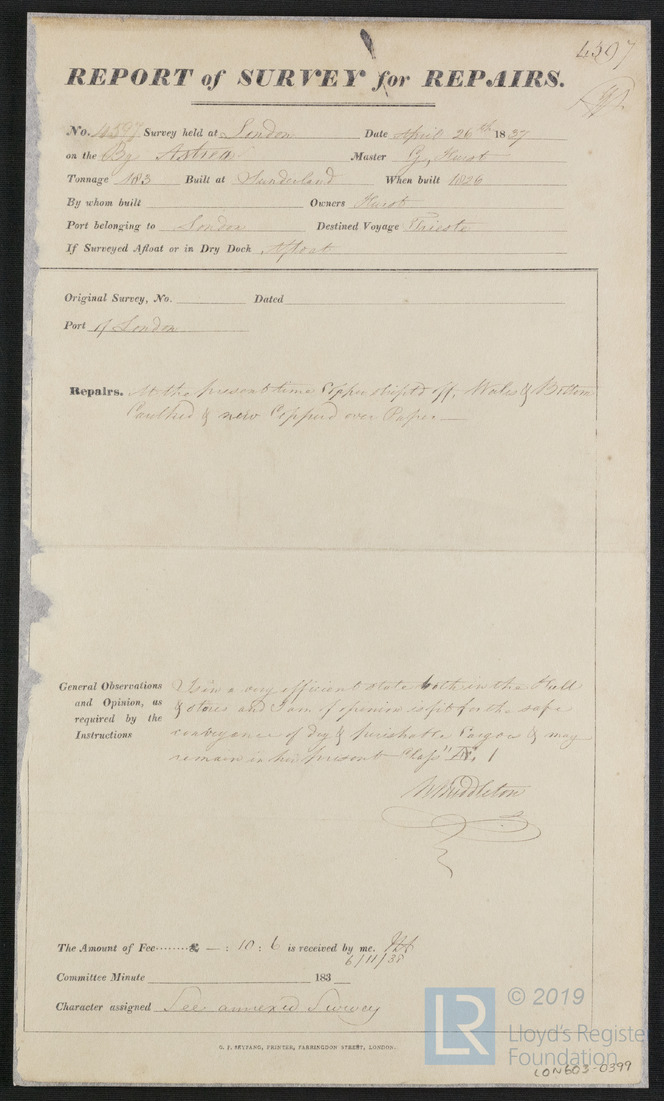 4597
REPORT of SURVEY for REPAIRS.
No. 4597 Survey held at London Date April 26th 1837
on the Bg Astrea Master G. Hurst
Tonnage 183 Built at Sunderland When built 1826
By whom built Owners Hurst
Port belonging to London Destined Voyage Trieste
If Surveyed Afloat or in Dry Dock Afloat
Original Survey, No. Dated
Port of London
Repairs. At the present time Copper stript off, Wales & Bottom
Caulked & new Copperd over Paper
General Observations and Opinion, as required by the Instructions
Is in a very efficient state both in the Hull
& stores and I am of opinion is fit for the safe
conveyance of dry & perishable Cargoes & may
remain in her present Class Æ 1
W Middleton
The Amount of Fee........£ — : 10 : 6 is received by me.
6/11/38
Committee Minute 183
Character assigned See annexed Survey
G. F. SEYFANG, PRINTER, FARRINGDON STREET, LONDON.
LR © 2019
Lloyd's Registe
Foundation
LON603-0399